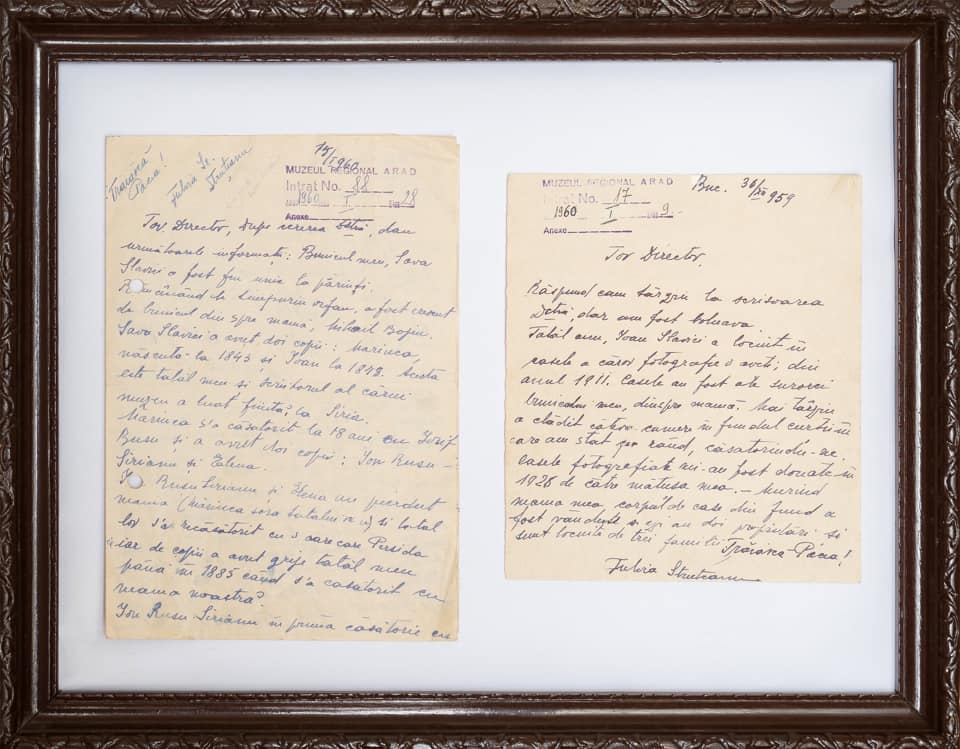 Trăiască
Pacea!
Iulia Sl.
Struteanu
15/I 1960
MUZEUL REGIONAL ARAD
Intrat No. 88
1960 I 28
Anexe
Tov Director, După cererea Dstră, dau
următoarele informații: Bunicul meu, Sava
Slavici a fost fiu unic la părinți.
Rămânând de timpuriu orfan, a fost crescut
de bunicul din spre mamă, Mihail Boșin.
Sava Slavici a avut doi copii: Marinca,
născută la 1843 și Ioan la 1848. Acesta
este tatăl meu și scriitorul al cărui
muzeu a luat ființă la Șiria.
Mărinca s'a căsătorit la 18 ani cu Iosif
Rusu și a avut doi copii: Ion Rusu-
Șirianu și Elena.
Rusu Șirianu și Elena au pierdut
mama (Mărinca sora tatălui meu) și tatăl
lor s'a recăsătorit cu o oarecare Persida
iar de copii a avut grije tatăl meu
până în 1885 când s'a căsătorit cu
mama noastră.
Ion Rusu Șirianu în prima căsătorie cu
MUZEUL REGIONAL ARAD
Intrat No. 17
1960 I 9
Anexe
Buc. 30/XII 959
Tov Director.
Răspund cam târziu la scrisoarea
Dstră, dar am fost bolnavă
Tatăl meu, Ioan Slavici a locuit în
casele a căror fotografie o aveți; din
anul 1911. Casele au fost ale surorei
bunicului meu, dinspre mamă. Mai târziu
a clădit câteva camere în fundul curții în
care am stat pe rând, căsătorindu-ne.
Casele fotografiate mi-au fost donate în
1928 de către mătușa mea. - Murind
mama mea, corpul de case din fund a
fost vândut și azi au doi proprietari și
sunt locuite de trei familii Trăiască Pacea!
Iulia Struteanu